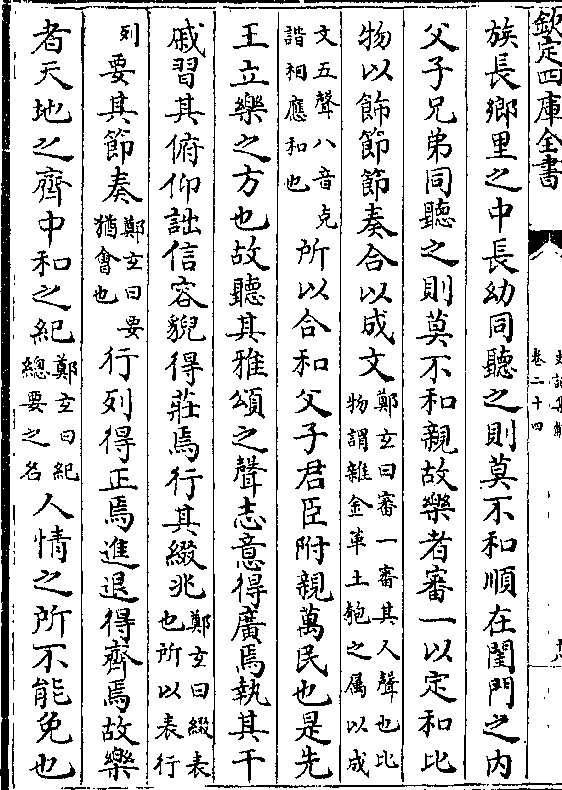 欽定四庫全書
史記集解
卷二十四
十八
族長鄉里之中長幼同聽之則莫不和順在閨門之内
父子兄弟同聽之則莫不和親故樂者審一以定和比
物以飾節節奏合以成文鄭玄曰審一審其人聲也比物謂雜金革土匏之属以成
文五聲八音克諧相應和也所以合和父子君臣附親萬民也是先
王立樂之方也故聽其雅頌之聲志意得廣焉執其干
戚習其俯仰詘信容貌得莊焉行其綴兆鄭玄曰綴表也所以表行
列要其節奏鄭玄曰要猶會也行列得正焉進退得齊焉故樂
者天地之齊中和之紀鄭玄曰紀總要之名人情之所不能免也